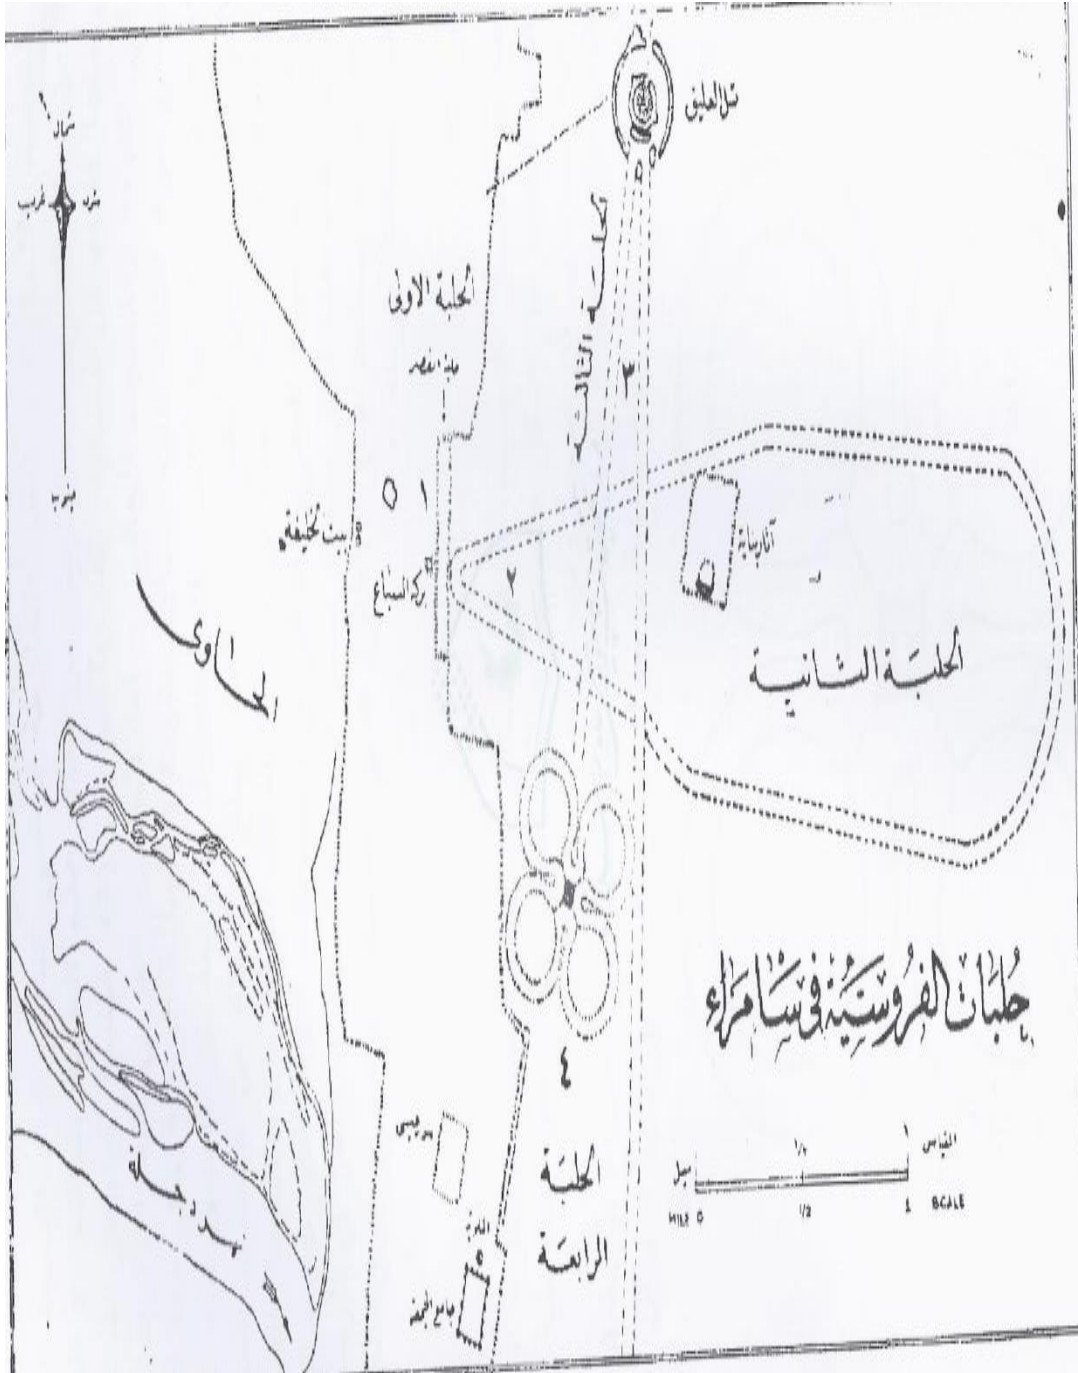 شمال
غرب
شرق
تل العليق
الحلبة الاولى
الحلبة الثالثة
٣
١
بيت الخليفة
بركة السباع
٢
آثار بناية
الحلبة الثانية
الحاوى
حلبات الفروسية في سامراء
٤
الحلبة
الرابعة
نهر دجلة
جامع الجمعة
المقياس
ميل
١
MILE 0 1/2 1 SCALE